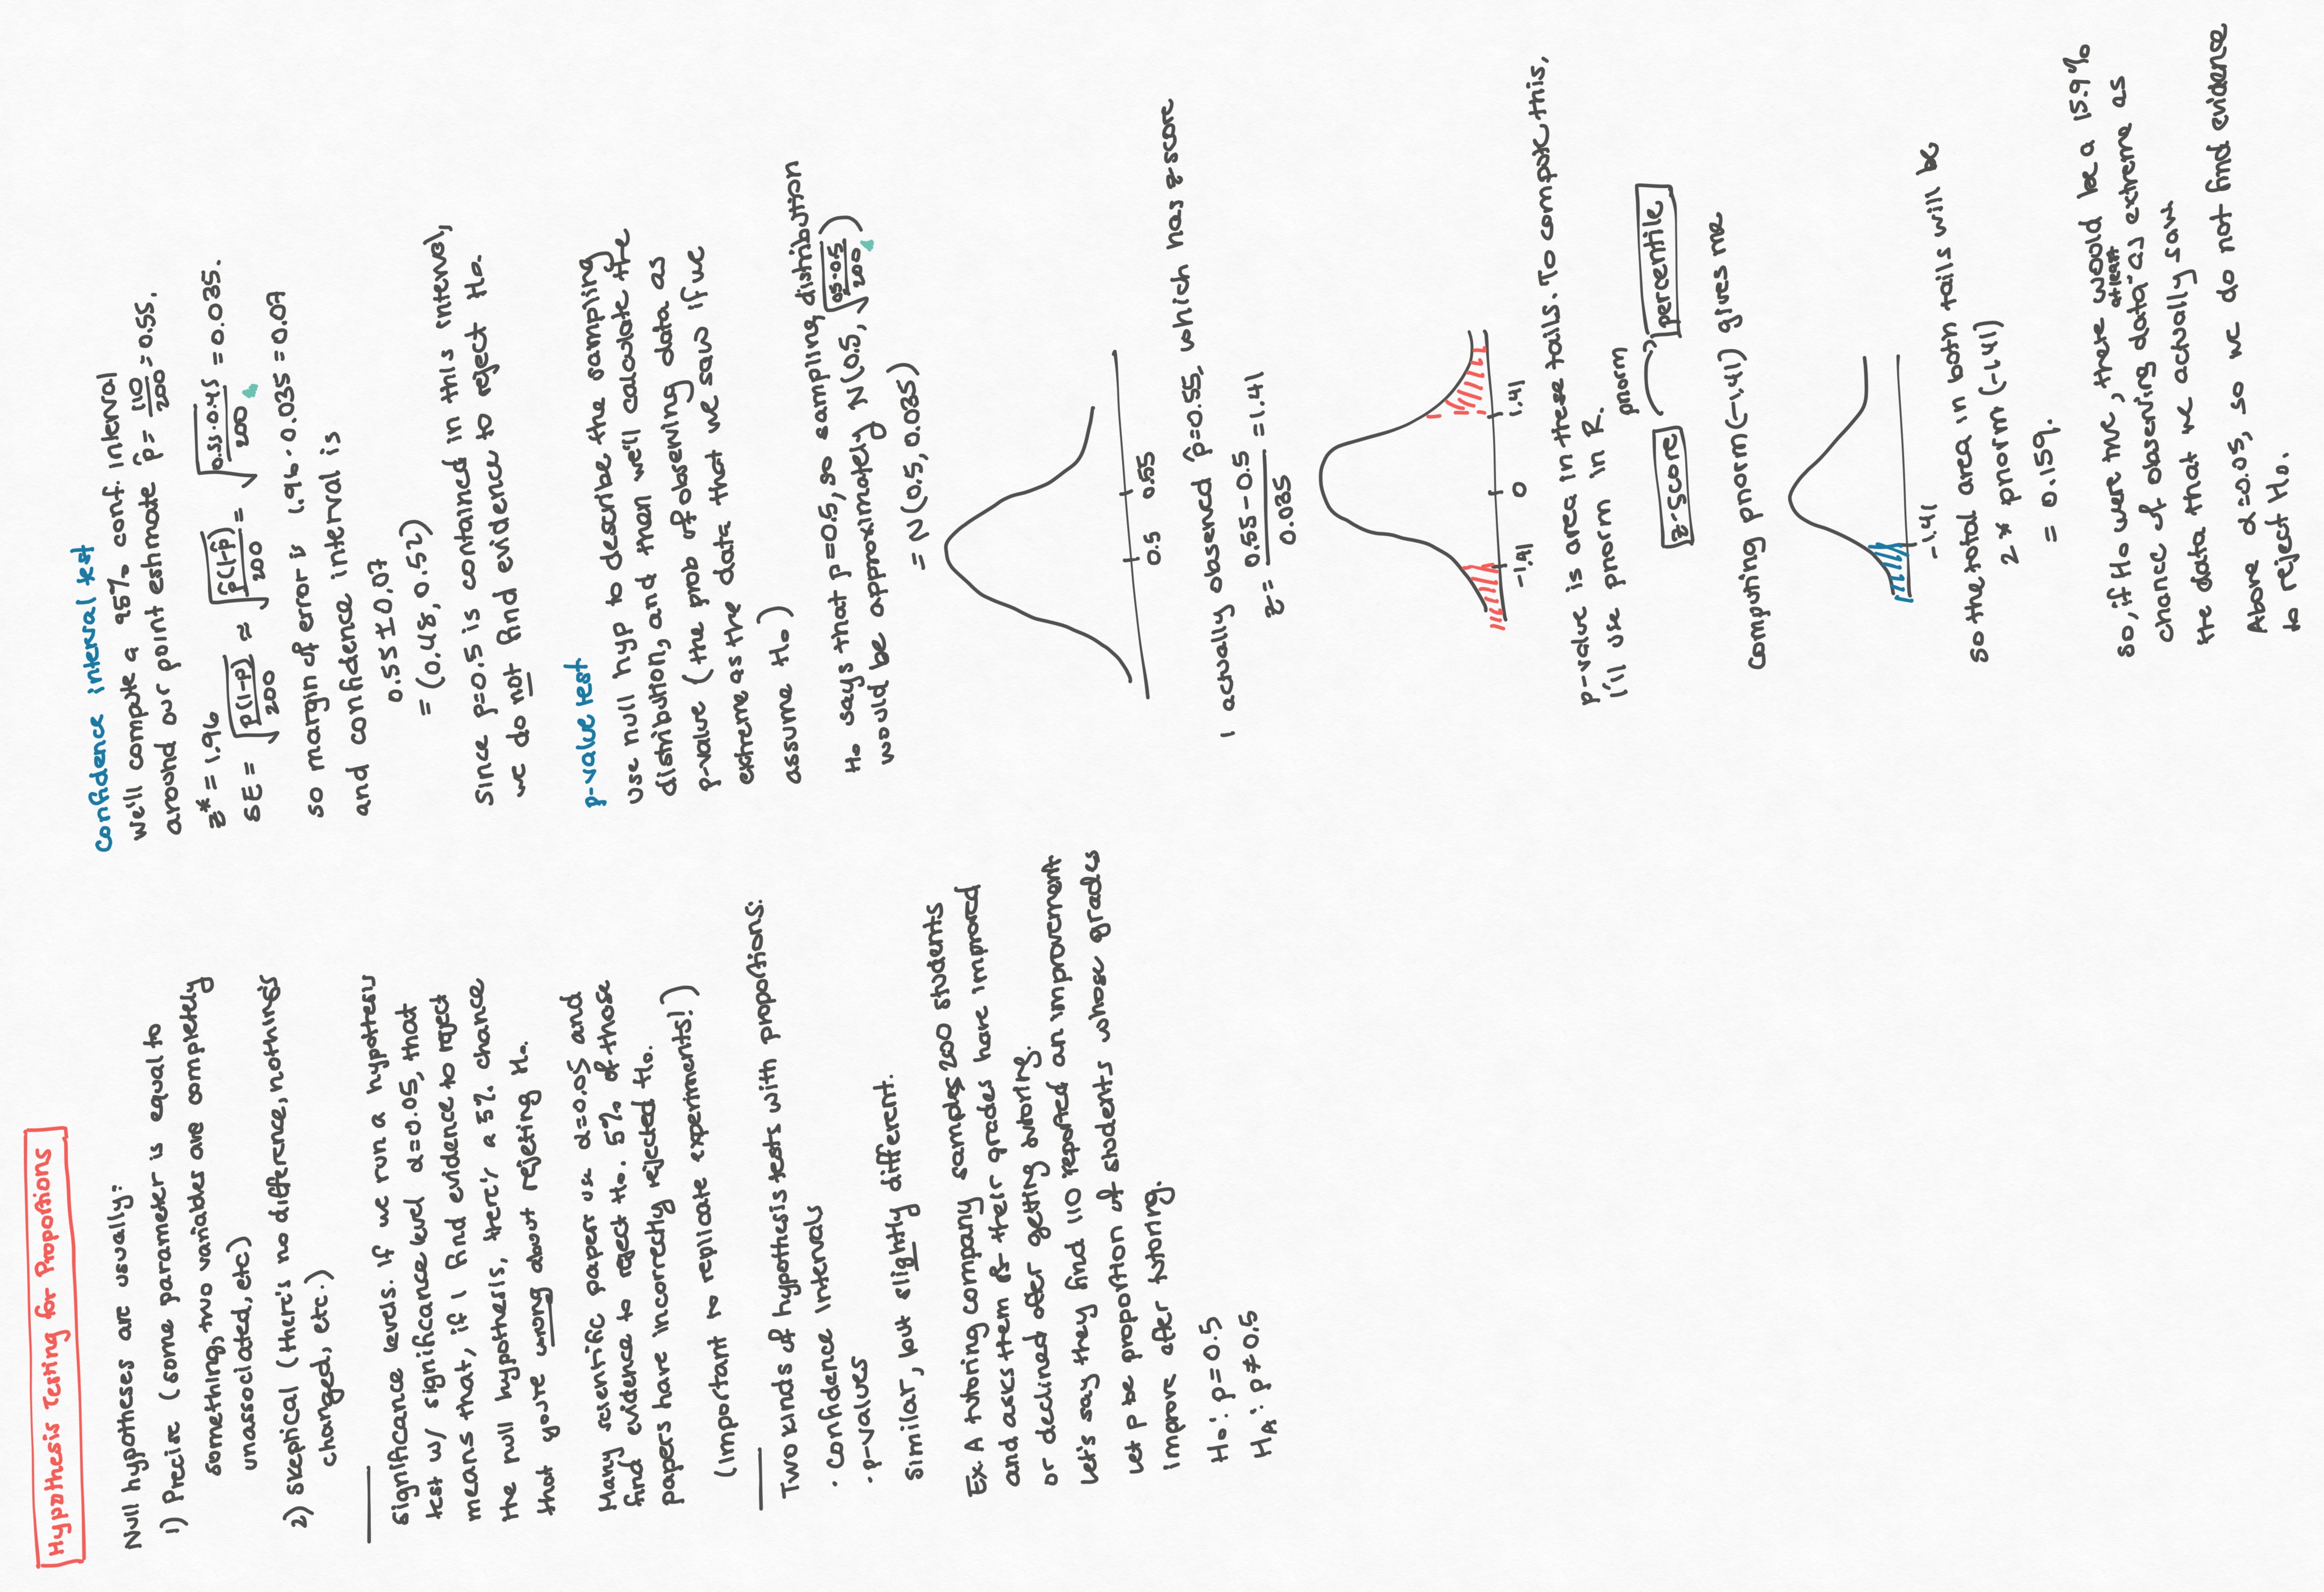 Hypothesis Testing for Proportions
Null hypotheses are usually:
1) Precise (some parameter is equal to
something, two variables are completely
unassociated, etc)
2) Skeptical (there's no difference, nothing's
changed, etc.)
Significance levels. If we run a hypothesis
test w/ significance level α=0.05, that
means that, if I find evidence to reject
the null hypothesis, there's a 5% chance
that you're wrong about rejeting H₀.
Many scientific papers use α=0.05 and
find evidence to reject H₀. 5% of those
papers have incorrectly rejected H₀.
(Important to replicate experiments!)
Two kinds of hypothesis tests with proportions:
· Confidence Intervals
· p-values
Similar, but slightly different.
Ex. A tutoring company samples 200 students
and asks them if their grades have improved
or declined after getting tutoring.
Let's say they find 110 reported an improvement
Let p be proportion of students whose grades
improve after tutoring.
H₀: p=0.5
H_A: p≠0.5
Confidence interval test
We'll compute a 95% conf. interval
around our point estimate p̂ = 110/200 = 0.55.
z* = 1.96
SE = √(p(1-p)/200) ≈ √(p̂(1-p̂)/200) = √(0.55·0.45/200) = 0.035.
So margin of error is 1.96·0.035=0.07
and confidence interval is
0.55±0.07
= (0.48, 0.52)
Since p=0.5 is contained in this interval,
we do not find evidence to reject H₀.
p-value test
Use null hyp to describe the sampling
distribution, and then we'll calculate the
p-value (the prob of observing data as
extreme as the data that we saw if we
assume H₀)
H₀ says that p=0.5, so sampling distribution
would be approximately N(0.5, √(0.5·0.5/200))
= N(0.5, 0.035)
0.5 0.55
I actually observed p̂=0.55, which has z-score
z = (0.55-0.5)/0.035 = 1.41
-1.41 0 1.41
p-value is area in these tails. To compute this,
I'll use pnorm in R.
pnorm
z-score percentile
Computing pnorm(-1.41) gives me
-1.41
So the total area in both tails will be
2 * pnorm(-1.41)
= 0.159.
So, if H₀ were true, there would be a 15.9%
chance of observing data at least as extreme as
the data that we actually saw
Above α=0.05, so we do not find evidence
to reject H₀.